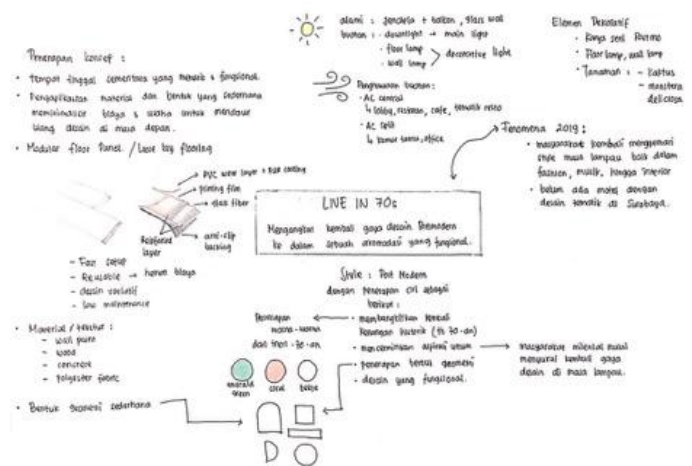 Penerapan konsep :
• Tempat tinggal sementara yang menarik & fungsional.
• Pengaplikasian material dan bentuk yang sederhana
meminimalisir biaya & usaha untuk mendaur
ulang desain di masa depan.
• Modular Floor Panel / Loose lay flooring
PVC wear layer + PUR coating
printing film
glass fiber
Reinforced
layer
anti-slip
backing
- Fast setup
- Reusable → hemat biaya
- desain variatif
- low maintenance
• Material / tekstur :
- wall paint
- wood
- concrete
- Polyester fabric
• Bentuk geometri sederhana
alami : jendela + balkon, glass wall
buatan : - downlight → main light
- floor lamp
- wall lamp
decorative light
Penghawaan buatan :
• AC central
↳ lobby, restoran, cafe,
• AC split
↳ kamar tamu, office
Elemen Dekoratif
• Karya seni
• Floor lamp, wall lamp
• Tanaman : - Kaktus
- monstera
deliciosa
Fenomena 2019 :
• masyarakat kembali menggemari
style masa lampau baik dalam
fashion, musik, hingga interior
• belum ada motel dengan
desain tematik di Surabaya.
LIVE IN 70s
Mengangkat kembali gaya desain Posmodern
ke dalam sebuah akomodasi yang fungsional.
Style : Post Modern
dengan penerapan ciri sebagai
berikut :
• membangkitkan kembali
kenangan historik (th 70-an)
• mencerminkan aspirasi umum
• penerapan bentuk geometri
• desain yang fungsional.
Penerapan
warna-warna
dari tren -70-an
emerald
green
coral
beige
masyarakat milenial mulai
menyukai kembali gaya
desain di masa lampau.